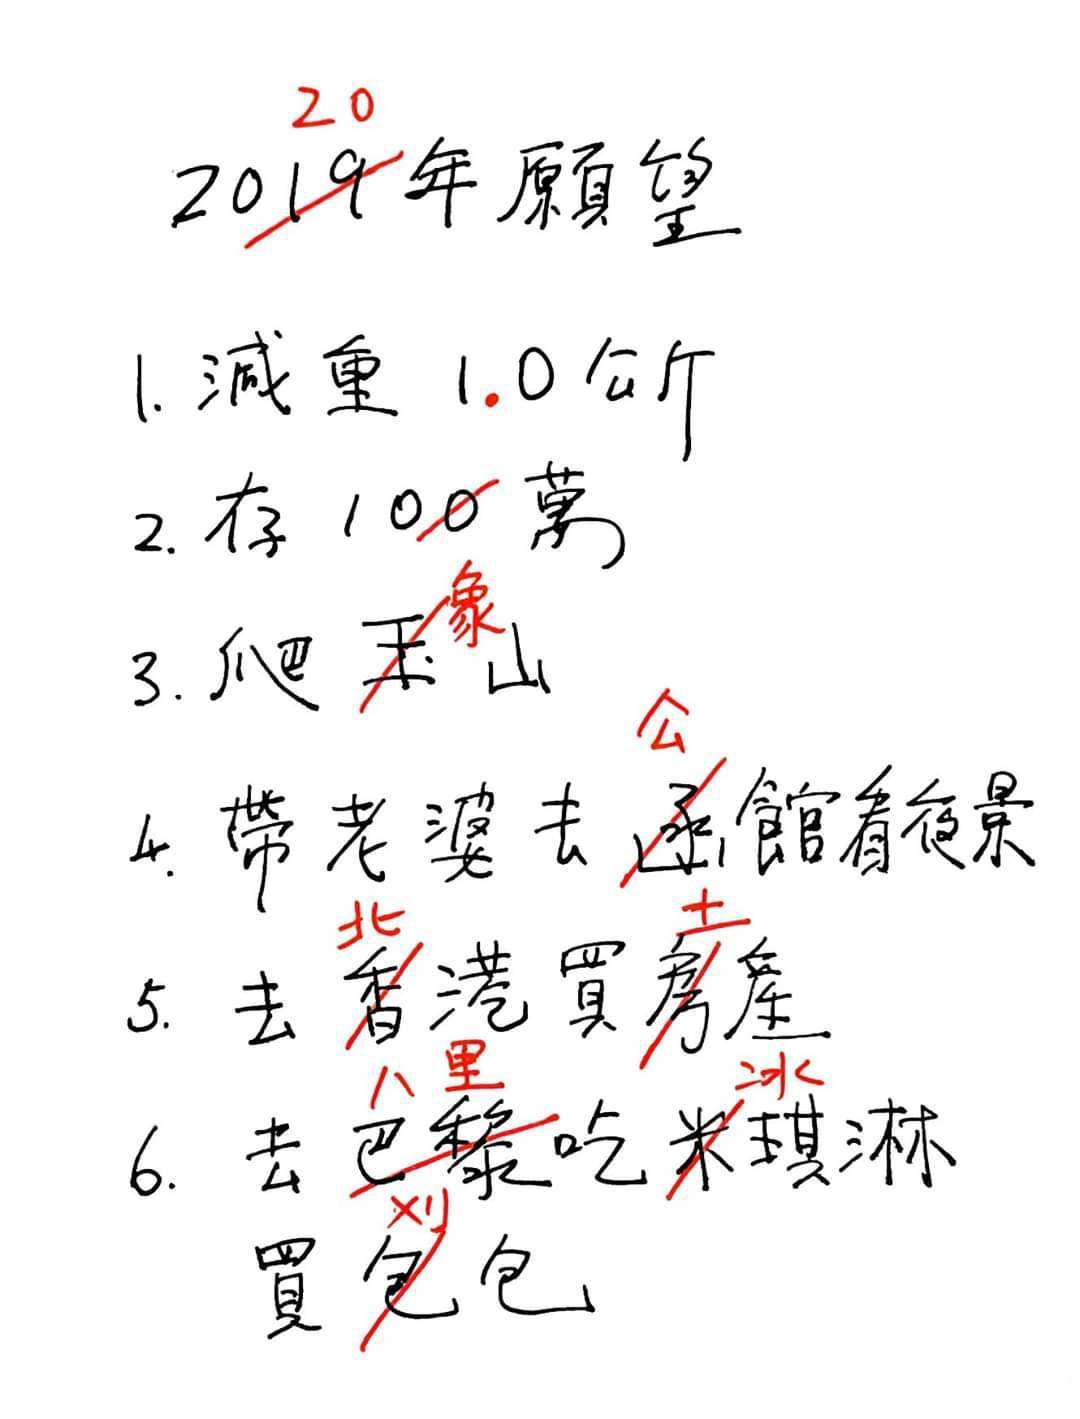 20
2019年願望
1. 減重 1.0公斤
2. 存 100萬
象
3. 爬 玉山
公
4. 帶老婆去函館看夜景
北 土
5. 去香港買房產
八里 冰
6. 去巴黎吃米琪淋
刈
買包包